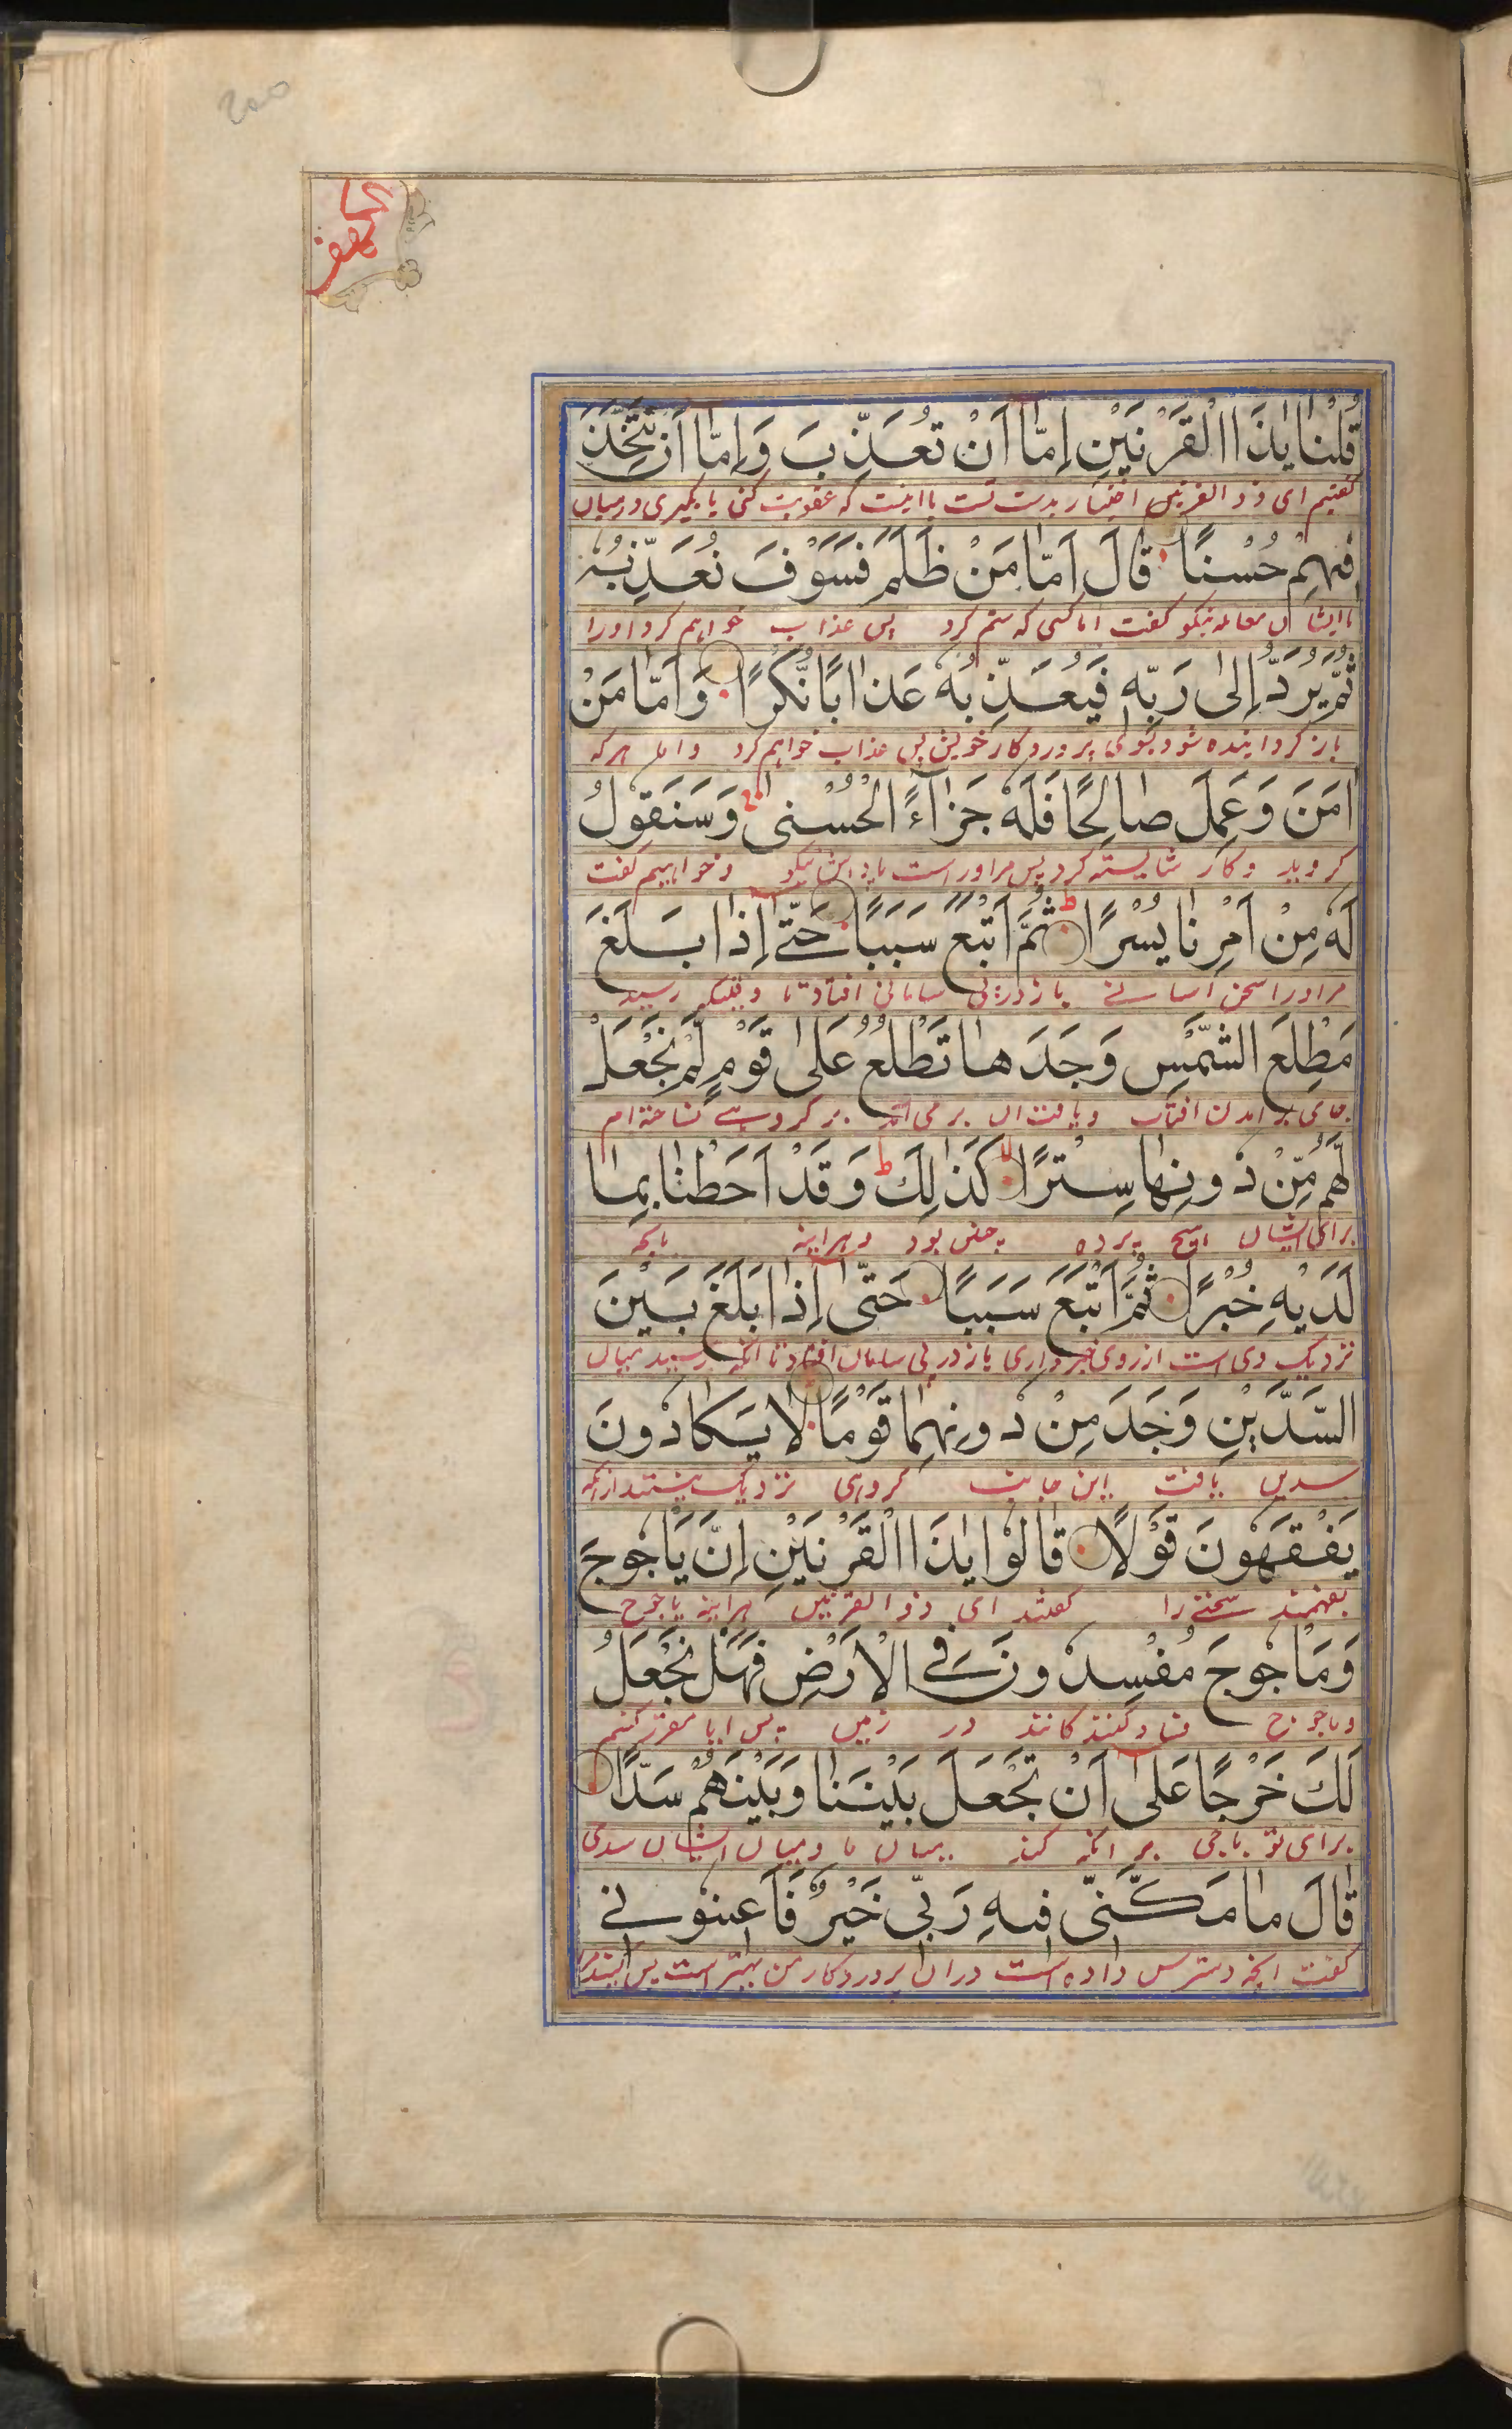 الكهف
قُلْنا يٰذَا الْقَرْنَيْنِ اِمّٰا اَنْ تُعَذِّبَ وَاِمّٰا اَنْ تَتَّخِذَ
گفتیم ای ذو القرنین اختیار بدست تست یا اینست که عقوبت کنی یا بگیری درمیان
فٖيهِمْ حُسْنًا قٰالَ اَمّٰا مَنْ ظَلَمَ فَسَوْفَ نُعَذِّبُهُ
با ایشان معامله نیکو گفت اما کسی که ستم کرد پس عذاب خواهیم کرد اورا
ثُمَّ يُرَدُّ اِلٰى رَبِّهٖ فَيُعَذِّبُهُ عَذٰابًا نُّكْرًا وَاَمّٰا مَنْ
باز گردانیده شود بسوی پروردگار خویش پس عذاب خواهم کرد و اما هر که
اٰمَنَ وَعَمِلَ صٰالِحًا فَلَهُ جَزٰآءً الْحُسْنٰى وَسَنَقُولُ
گروید و کار شایسته کرد پس مراوراست پاداش نیکو و خواهیم گفت
لَهُ مِنْ اَمْرِنٰا يُسْرًا ثُمَّ اَتْبَعَ سَبَبًا حَتّٰٓى اِذٰا بَلَغَ
مراورا سخن آسانی باز در پی سامانی افتاد تا وقتیکه رسید
مَطْلِعَ الشَّمْسِ وَجَدَهٰا تَطْلُعُ عَلٰى قَوْمٍ لَّمْ نَجْعَلْ
جای بر امدن افتاب و یافت ان بر می آمد بر گروهی نساخته ام
لَّهُمْ مِّنْ دُونِهٰا سِتْرًا كَذٰلِكَ وَقَدْ اَحَطْنٰا بِمٰا
برای ایشان هیچ پرده چنین بود و هراینه بانچه
لَدَيْهِ خُبْرًا ثُمَّ اَتْبَعَ سَبَبًا حَتّٰٓى اِذٰا بَلَغَ بَيْنَ
نزدیک وی است از روی خبرداری باز در پی سامان افتاد تا انکه رسید میان
السَّدَّيْنِ وَجَدَ مِنْ دُونِهِمٰا قَوْمًا لٰا يَكٰادُونَ
سدین یافت این جانب گروهی نزدیک نیستند ازانکه
يَفْقَهُونَ قَوْلًا قٰالُوا يٰذَا الْقَرْنَيْنِ اِنَّ يَأْجُوجَ
بفهمند سخنی را گفتند ای ذو القرنین هراینه یاجوج
وَمَأْجُوجَ مُفْسِدُونَ فِي الْاَرْضِ فَهَلْ نَجْعَلُ
وماجوج فساد کنندکانند در زمین پس ایا مقرر کنیم
لَكَ خَرْجًا عَلٰٓى اَنْ تَجْعَلَ بَيْنَنٰا وَبَيْنَهُمْ سَدًّا
برای تو باجی بر انکه کند میان ما و میان ایشان سدی
قٰالَ مٰا مَكَّنّٖى فٖيهِ رَبّٖى خَيْرٌ فَاَعٖينُونٖي
گفت انچه دسترس داده است دران پروردگار من بهتر است پس